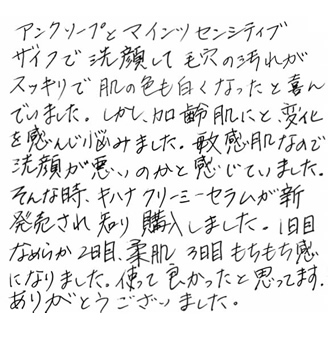 アンクソープとマインツセンシティブ
ザイフで洗顔して毛穴の汚れが
スッキリで肌の色も白くなったと喜ん
でいました。しかし、加齢肌にと、変化
を感んじ悩みました。敏感肌なので
洗顔が悪いのかと感じていました。
そんな時、キハナクリーミーセラムが新
発売され知り購入しました。1日目
なめらか2日目、柔肌3日目もちもち感
になりました。使って良かったと思ってます。
ありがとうございました。